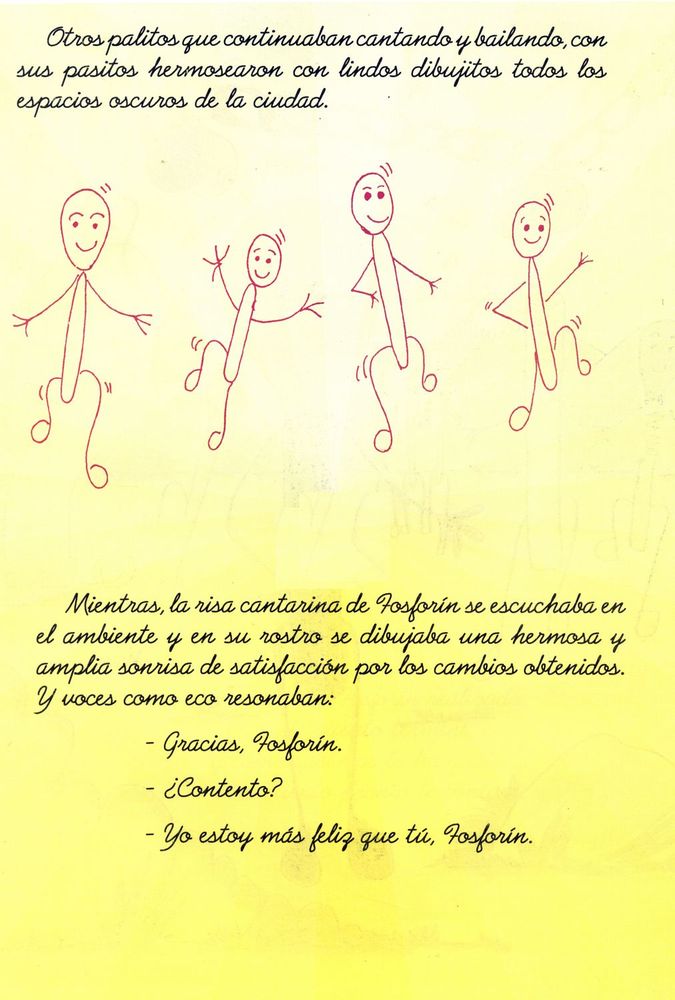 Otros palitos que continuaban cantando y bailando, con
sus pasitos hermosearon con lindos dibujitos todos los
espacios oscuros de la ciudad.
Mientras, la risa cantarina de Fosforín se escuchaba en
el ambiente y en su rostro se dibujaba una hermosa y
amplia sonrisa de satisfacción por los cambios obtenidos.
Y voces como eco resonaban:
- Gracias, Fosforín.
- ¿Contento?
- Yo estoy más feliz que tú, Fosforín.